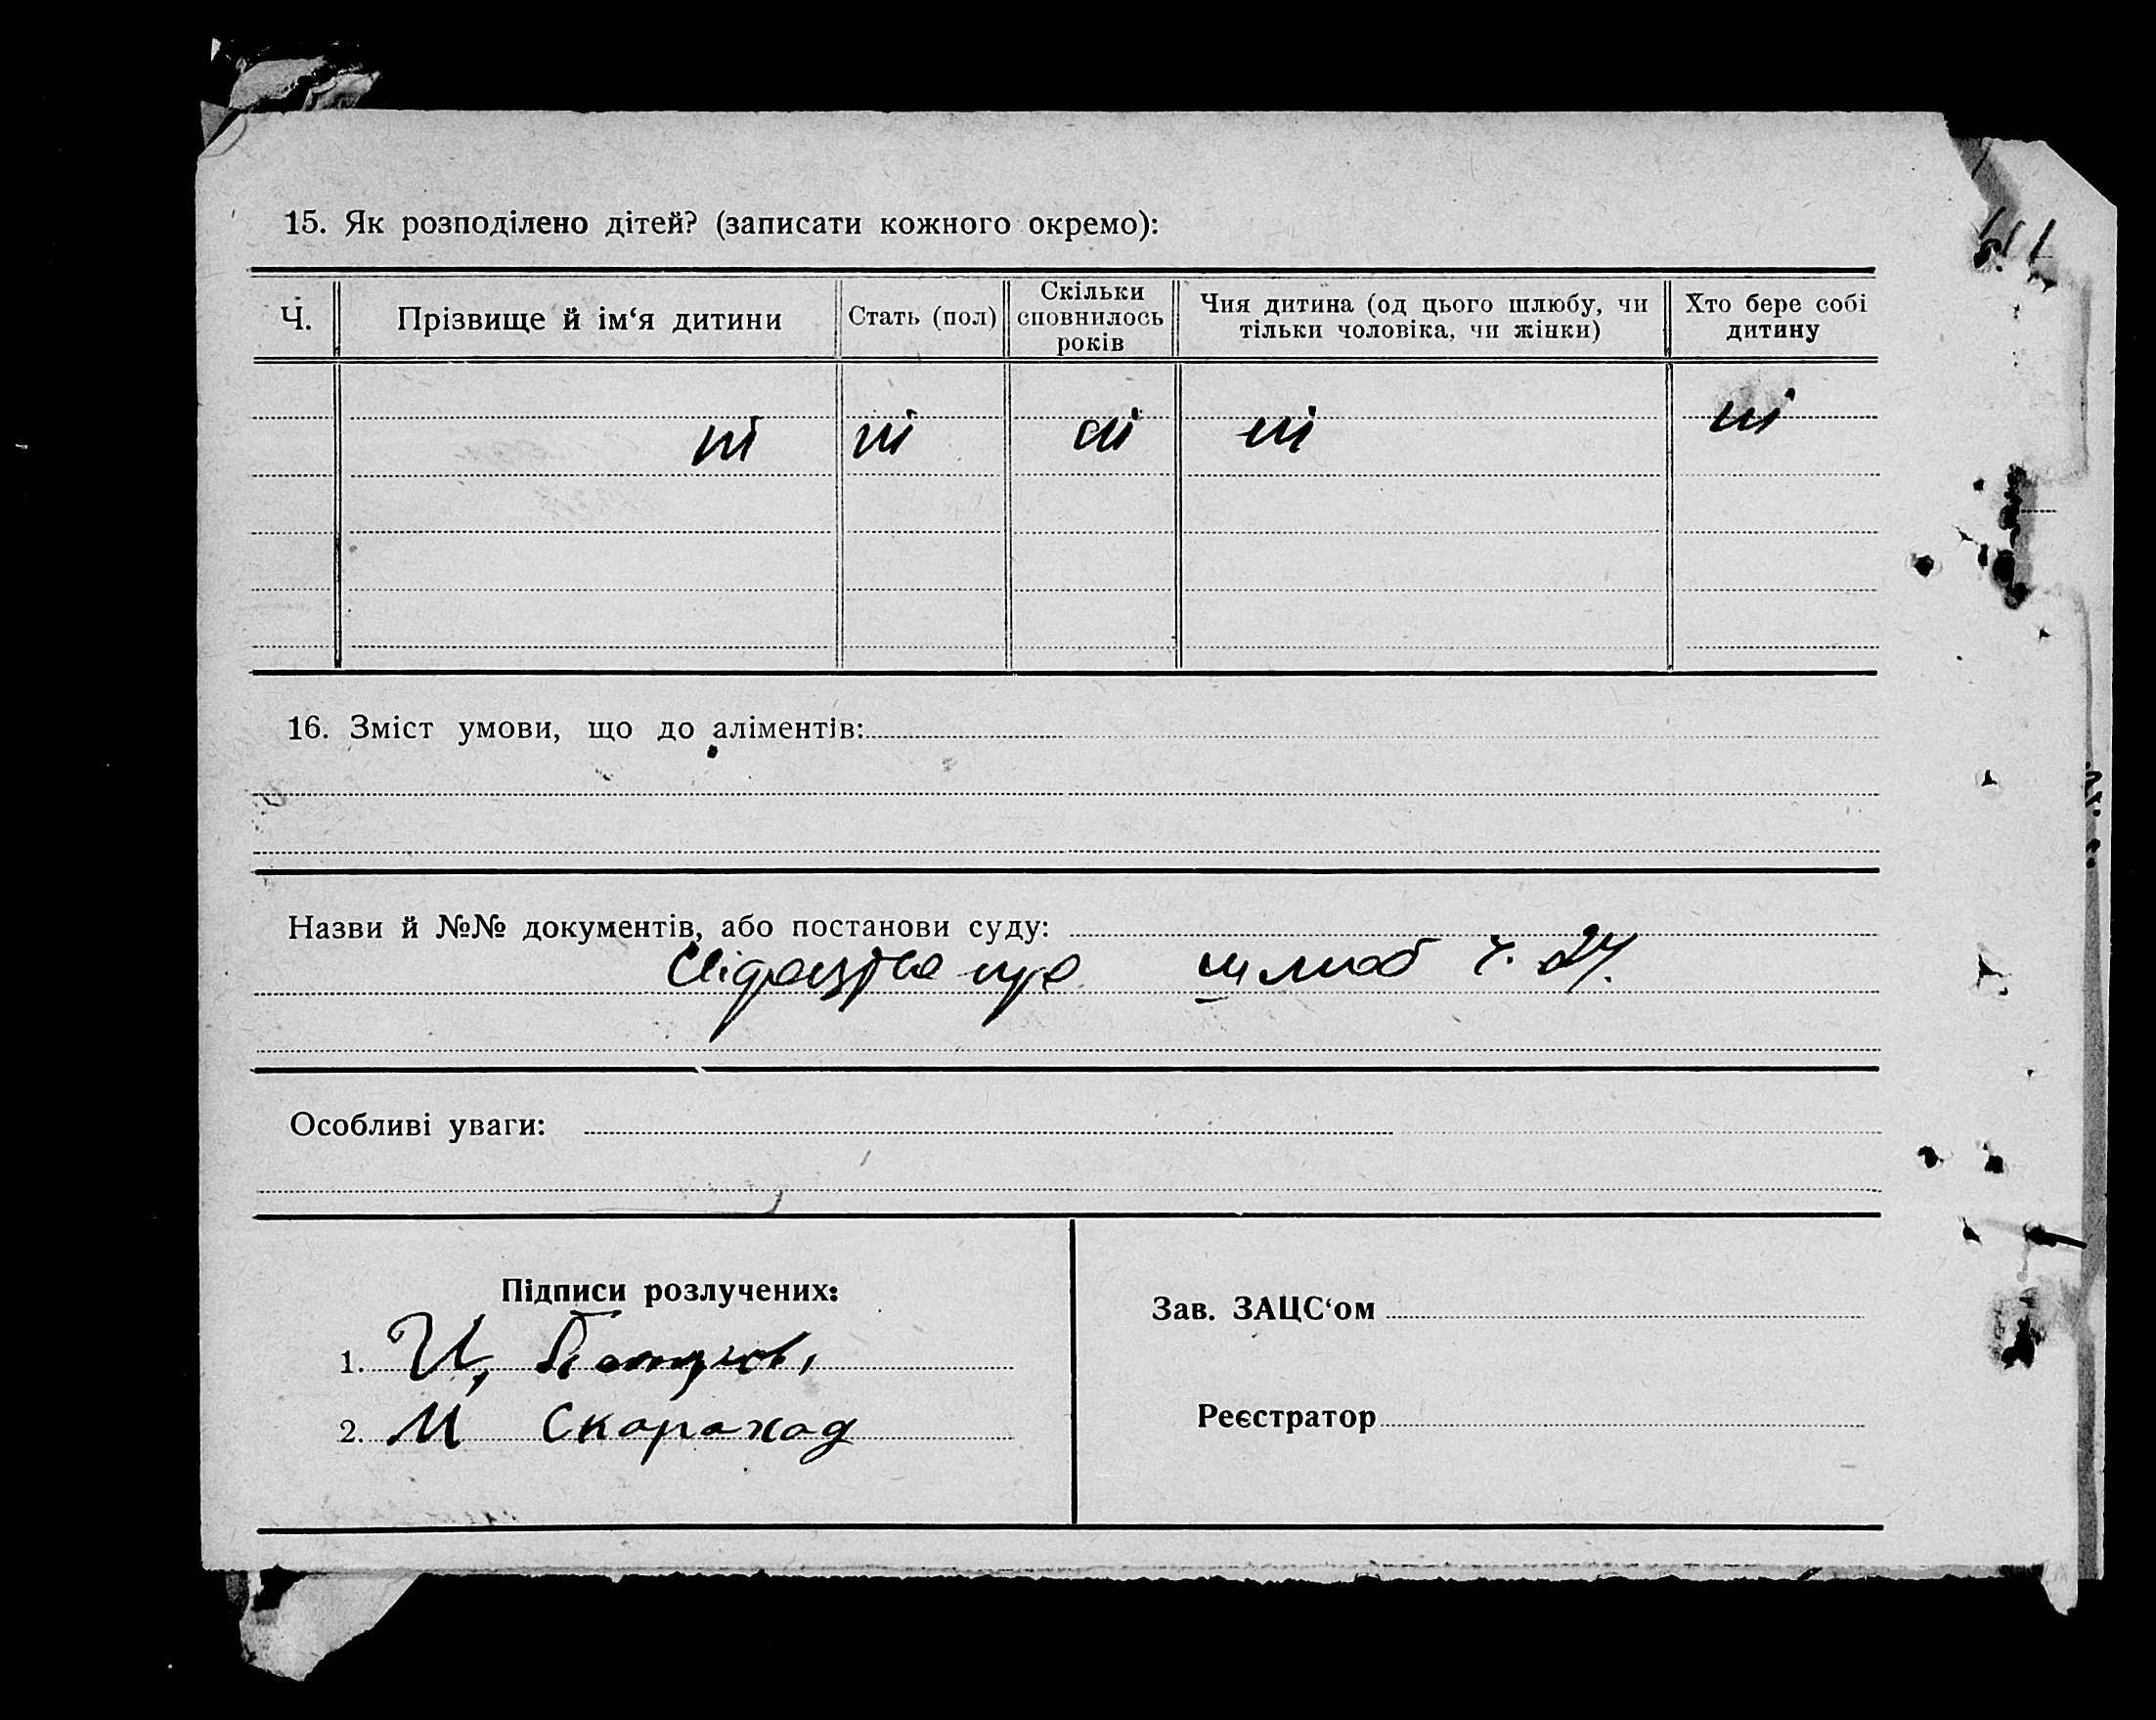 15. Як розподілено дітей? (записати кожного окремо):
Ч. Прізвище й ім‘я дитини Стать (пол) Скільки сповнилось років Чия дитина (од цього шлюбу, чи тільки чоловіка, чи жінки) Хто бере собі дитину
ні ні ні ні ні
16. Зміст умови, що до аліментів:
Назви й №№ документів, або постанови суду:
про шлюб ч. 27.
Особливі уваги:
Підписи розлучених:
1. И,
2. М Скараход
Зав. ЗАЦС‘ом
Реєстратор